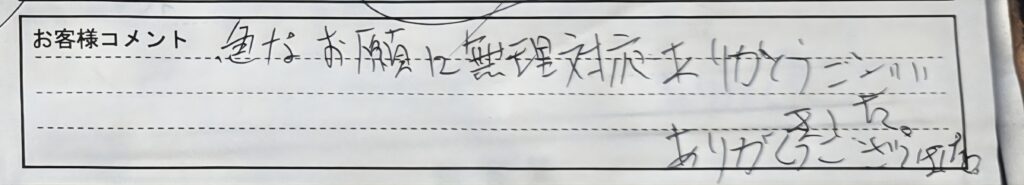 お客様コメント 急なお願に無理対応ありがとうござい
ました。
ありがとうございました。